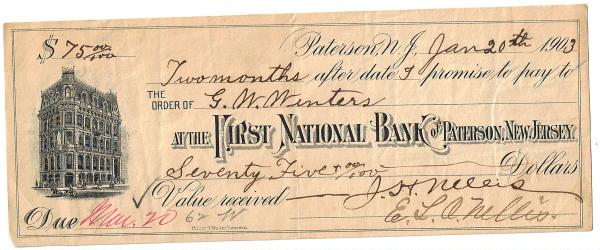 $ 75 00/100
Paterson, N.J. Jan 20th 1903
Two months after date I promise to pay to
THE ORDER OF G. W. Winters
AT THE FIRST NATIONAL BANK OF PATERSON, NEW JERSEY.
Seventy Five + 00/100 Dollars
Value received J. H. Nellis
Due Mar. 20 62 W E. L. A. Nellis.